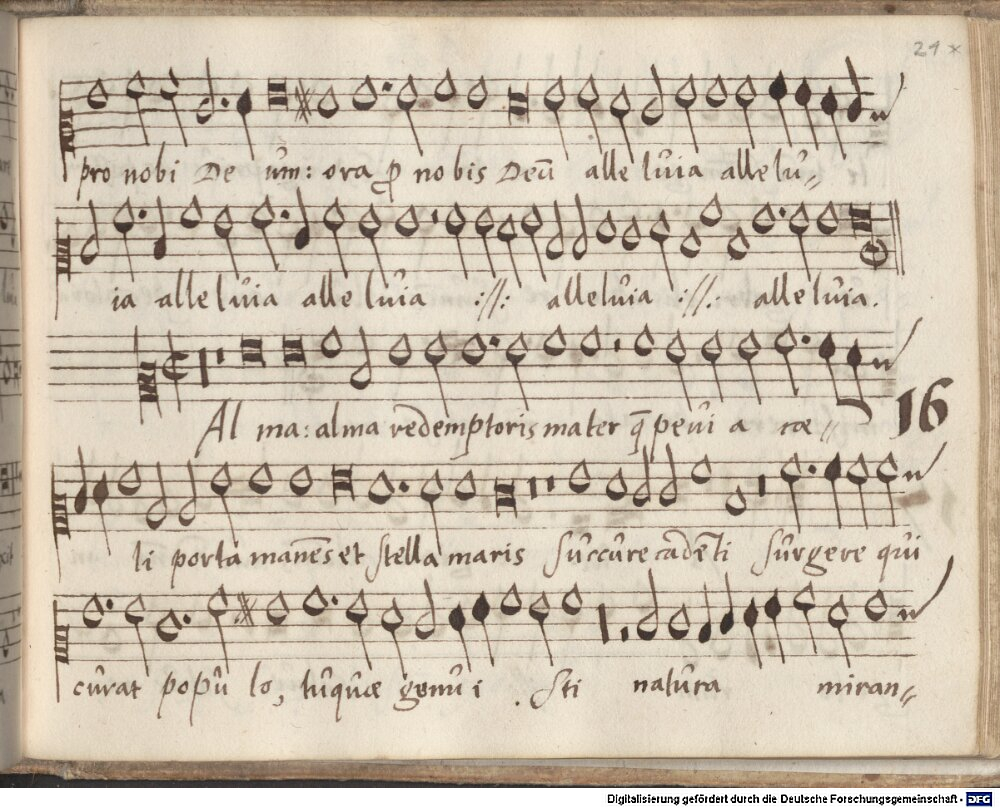 24 x
pro nobi De um: ora ꝓ nobis Deū alle luia allelu//
ia alleluia alleluia ://: alleluia ://: alleluia.
Al ma: alma redemptoris mater q̄ peui a cæ //
16
li porta manēs et stella maris succure cadēti surgere qui
curat populo, tuquæ genui sti natura miran//
Digitalisierung gefördert durch die Deutsche Forschungsgemeinschaft - DFG